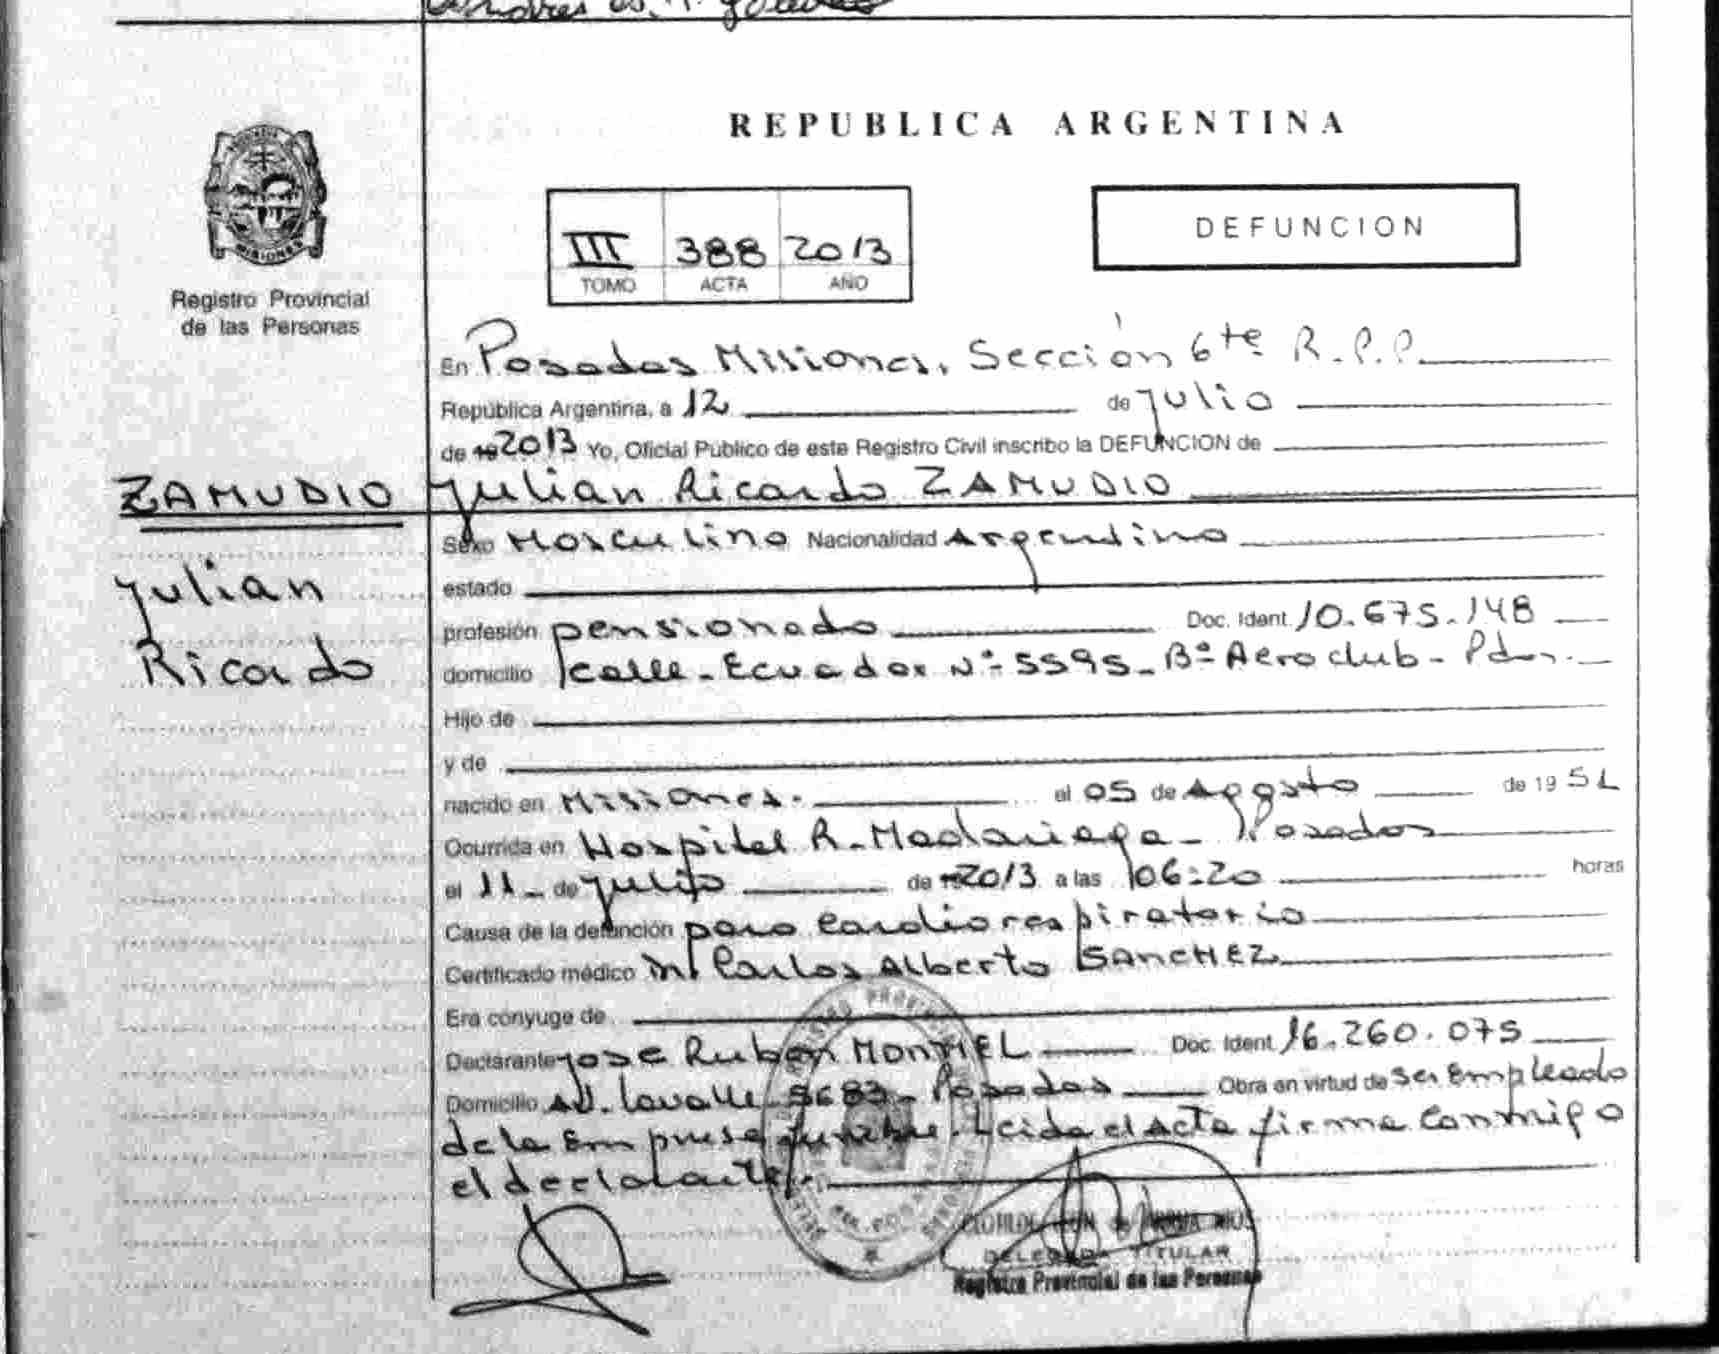 REPUBLICA ARGENTINA
MISIONES
Registro Provincial
de las Personas
III 388 2013
TOMO ACTA AÑO
DEFUNCION
En Posadas Misiones, Sección 6te R.P.P.
República Argentina, a 12 de julio
de 2013 Yo, Oficial Público de este Registro Civil inscribo la DEFUNCION de
ZAMUDIO
Julian
Ricardo
Julian Ricardo ZAMUDIO
Sexo Masculino Nacionalidad Argentino
estado
profesión pensionado Doc. Ident. 10.675.148
domicilio calle - Ecuador Nº 5595 - Bº Aeroclub - Pdas.
Hijo de
y de
nacido en Misiones. el 05 de Agosto de 19
Ocurrida en Hospital R. Madariaga - Posadas
el 11 - de julio de 2013 a las 06:20 horas
Causa de la defunción paro cardiorespiratorio
Certificado médico Carlos Alberto SANCHEZ
Era conyuge de
Declarante Jose Ruben MONTIEL Doc. Ident. 16.260.075
Domicilio Av. Lavalle Posadas Obra en virtud de ser Empleado
de la Empresa funebre. Leida el Acta firma conmigo
el declarante.
DELEGADA TITULAR
Registro Provincial de las Personas